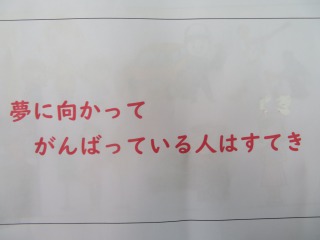 夢に向かって
がんばっている人はすてき